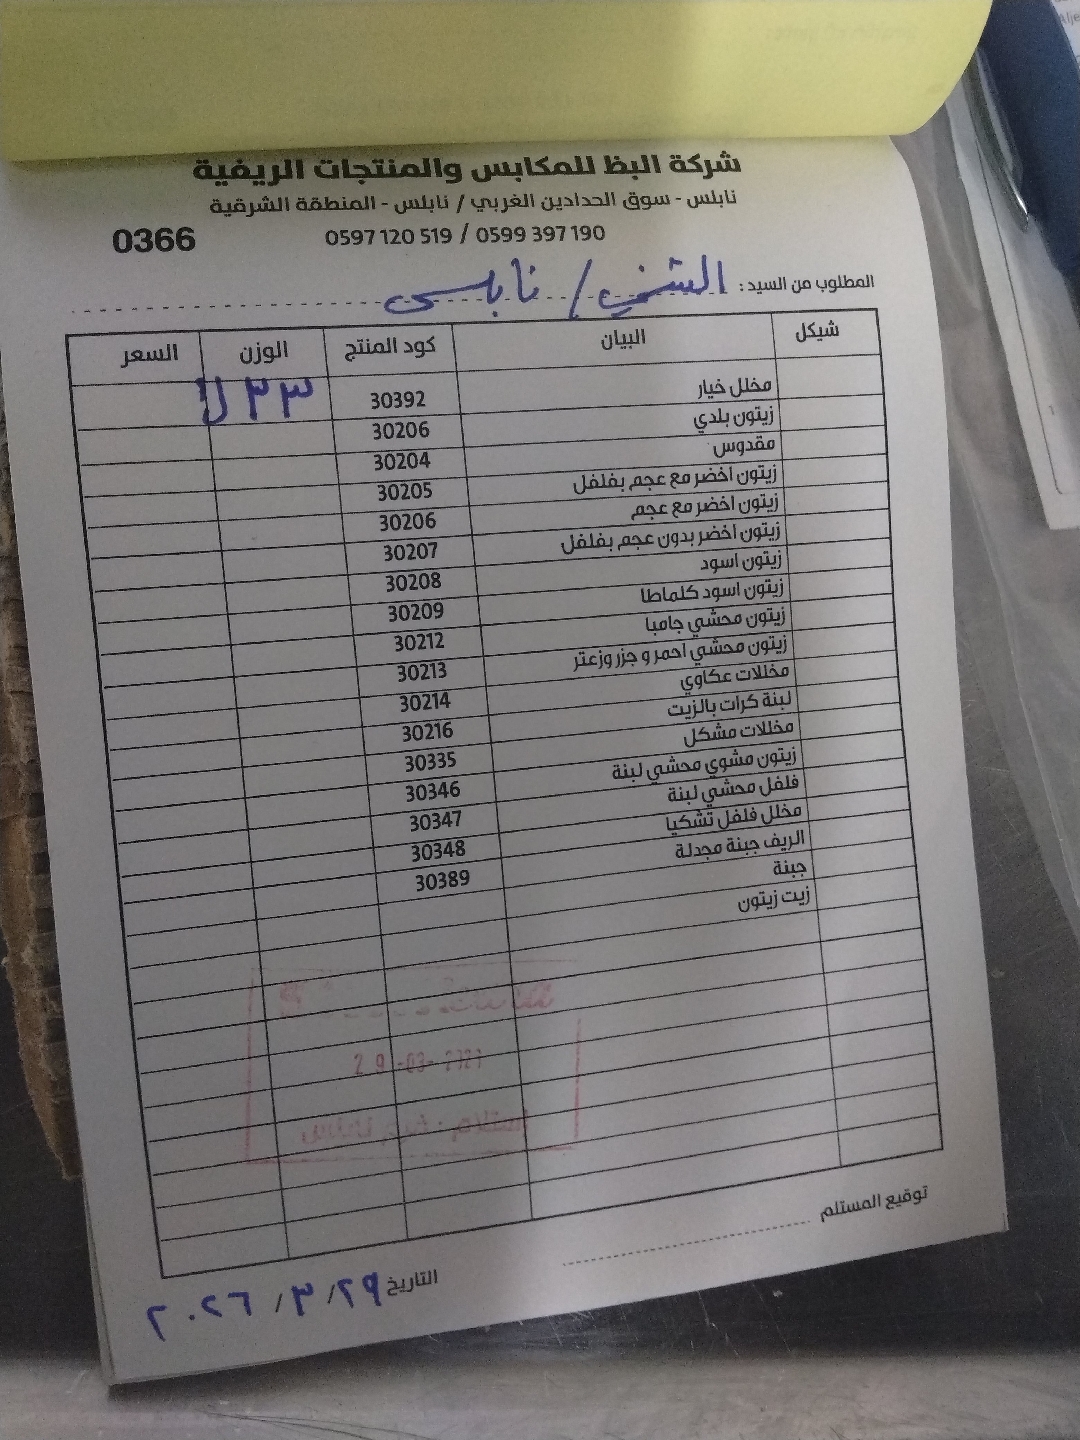 شركة البظ للمكابس والمنتجات الريفية
نابلس - سوق الحدادين الغربي / نابلس - المنطقة الشرقية
0599 397 190 / 0597 120 519
0366
المطلوب من السيد : الشني / نابلس
شيكل البيان كود المنتج الوزن السعر
مخلل خيار 30392 ٣٣
زيتون بلدي 30206
مقدوس 30204
زيتون اخضر مع عجم بفلفل 30205
زيتون اخضر مع عجم 30206
زيتون اخضر بدون عجم بفلفل 30207
زيتون اسود 30208
زيتون اسود كلماطا 30209
زيتون محشي جامبا 30212
زيتون محشي احمر و جزر وزعتر 30213
مخللات عكاوي 30214
لبنة كرات بالزيت 30216
مخللات مشكل 30335
زيتون مشوي محشي لبنة 30346
فلفل محشي لبنة 30347
مخلل فلفل تشكيا 30348
الريف جبنة مجدلة 30389
جبنة
زيت زيتون
توقيع المستلم
التاريخ ٢٩ / ٣ / ٢٠٢٦